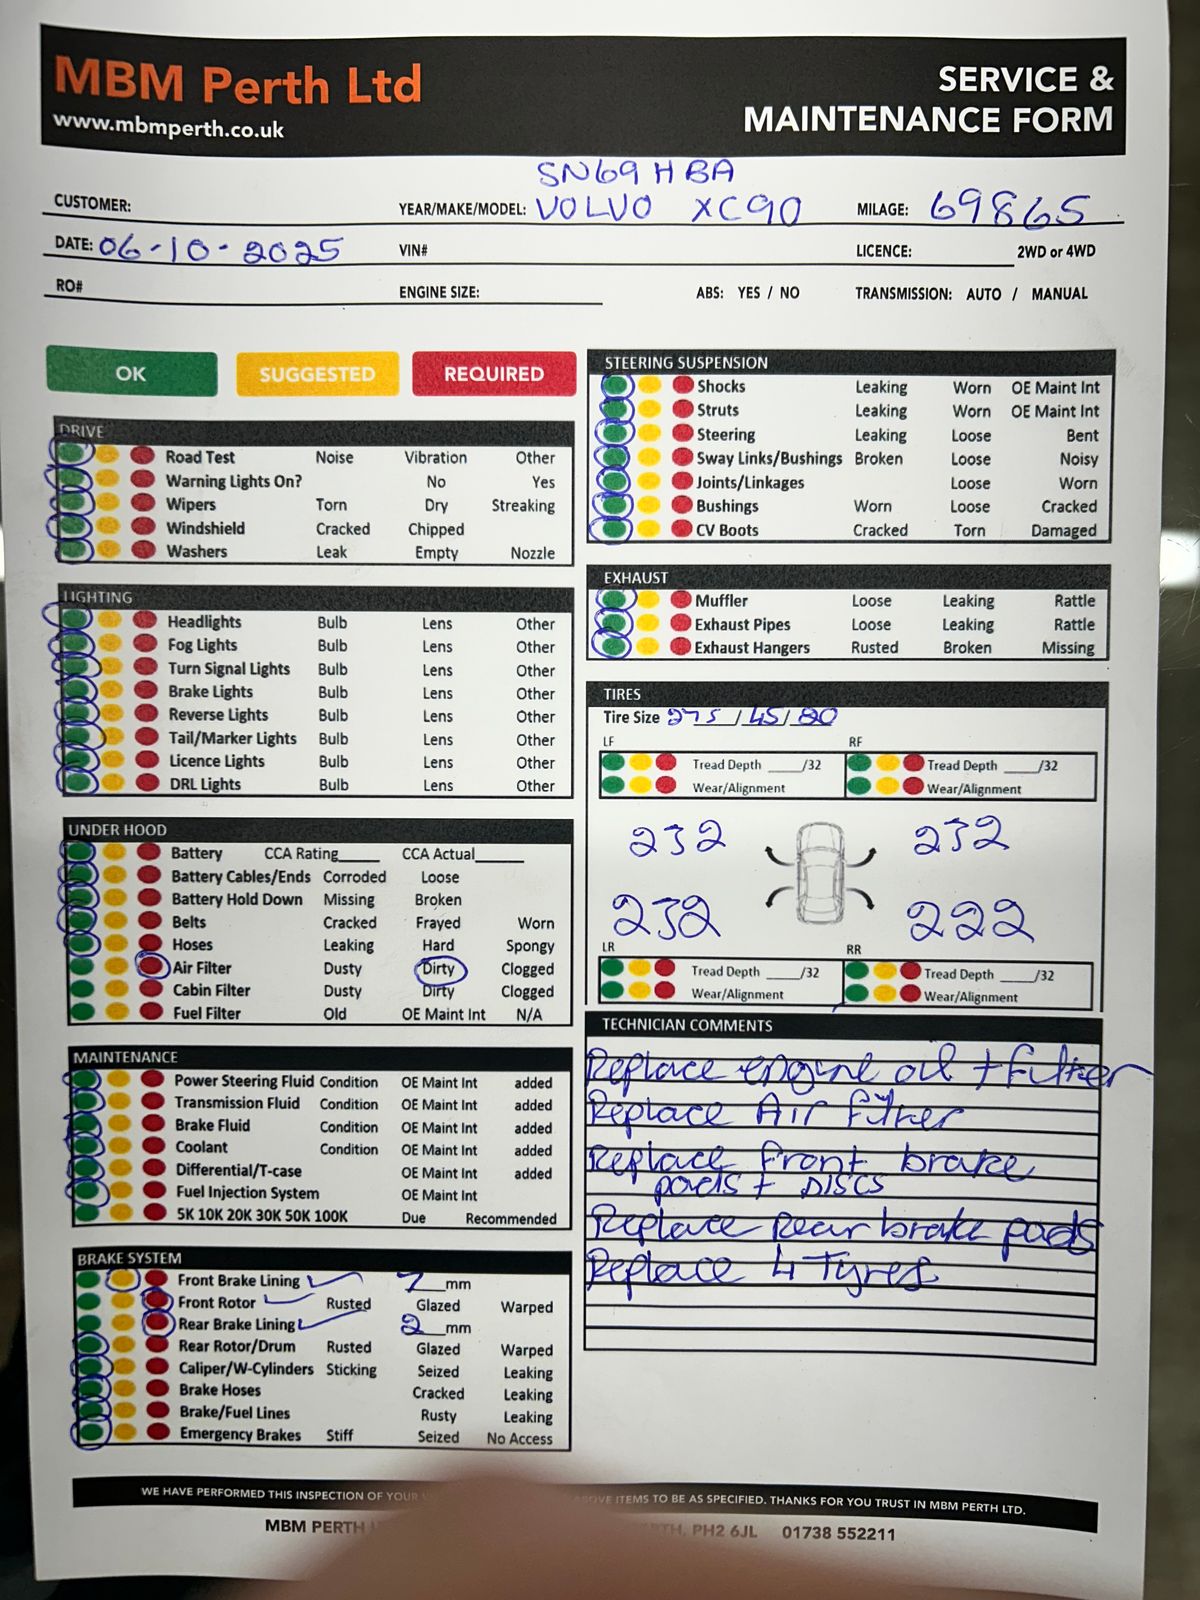 MBM Perth Ltd
www.mbmperth.co.uk
SERVICE &
MAINTENANCE FORM
SN69 HBA
CUSTOMER: YEAR/MAKE/MODEL: VOLVO XC90 MILAGE: 69865
DATE: 06-10-2025 VIN# LICENCE: 2WD or 4WD
RO# ENGINE SIZE: ABS: YES / NO TRANSMISSION: AUTO / MANUAL
OK SUGGESTED REQUIRED
DRIVE
Road Test Noise Vibration Other
Warning Lights On? No Yes
Wipers Torn Dry Streaking
Windshield Cracked Chipped
Washers Leak Empty Nozzle
LIGHTING
Headlights Bulb Lens Other
Fog Lights Bulb Lens Other
Turn Signal Lights Bulb Lens Other
Brake Lights Bulb Lens Other
Reverse Lights Bulb Lens Other
Tail/Marker Lights Bulb Lens Other
Licence Lights Bulb Lens Other
DRL Lights Bulb Lens Other
UNDER HOOD
Battery CCA Rating____ CCA Actual____
Battery Cables/Ends Corroded Loose
Battery Hold Down Missing Broken
Belts Cracked Frayed Worn
Hoses Leaking Hard Spongy
Air Filter Dusty Dirty Clogged
Cabin Filter Dusty Dirty Clogged
Fuel Filter Old OE Maint Int N/A
MAINTENANCE
Power Steering Fluid Condition OE Maint Int added
Transmission Fluid Condition OE Maint Int added
Brake Fluid Condition OE Maint Int added
Coolant Condition OE Maint Int added
Differential/T-case OE Maint Int added
Fuel Injection System OE Maint Int
5K 10K 20K 30K 50K 100K Due Recommended
BRAKE SYSTEM
Front Brake Lining 7 mm
Front Rotor Rusted Glazed Warped
Rear Brake Lining 2 mm
Rear Rotor/Drum Rusted Glazed Warped
Caliper/W-Cylinders Sticking Seized Leaking
Brake Hoses Cracked Leaking
Brake/Fuel Lines Rusty Leaking
Emergency Brakes Stiff Seized No Access
STEERING SUSPENSION
Shocks Leaking Worn OE Maint Int
Struts Leaking Worn OE Maint Int
Steering Leaking Loose Bent
Sway Links/Bushings Broken Loose Noisy
Joints/Linkages Loose Worn
Bushings Worn Loose Cracked
CV Boots Cracked Torn Damaged
EXHAUST
Muffler Loose Leaking Rattle
Exhaust Pipes Loose Leaking Rattle
Exhaust Hangers Rusted Broken Missing
TIRES
Tire Size 275 / 45 / 20
LF RF
Tread Depth ____/32 Tread Depth ____/32
Wear/Alignment Wear/Alignment
232 232
232 222
LR RR
Tread Depth ____/32 Tread Depth ____/32
Wear/Alignment Wear/Alignment
TECHNICIAN COMMENTS
Replace engine oil + filter
Replace Air filter
Replace front brake
pads + DISCS
Replace Rear brake pads
Replace 4 Tyres
WE HAVE PERFORMED THIS INSPECTION OF YOUR ITEMS TO BE AS SPECIFIED. THANKS FOR YOU TRUST IN MBM PERTH LTD.
MBM PERTH PH2 6JL 01738 552211